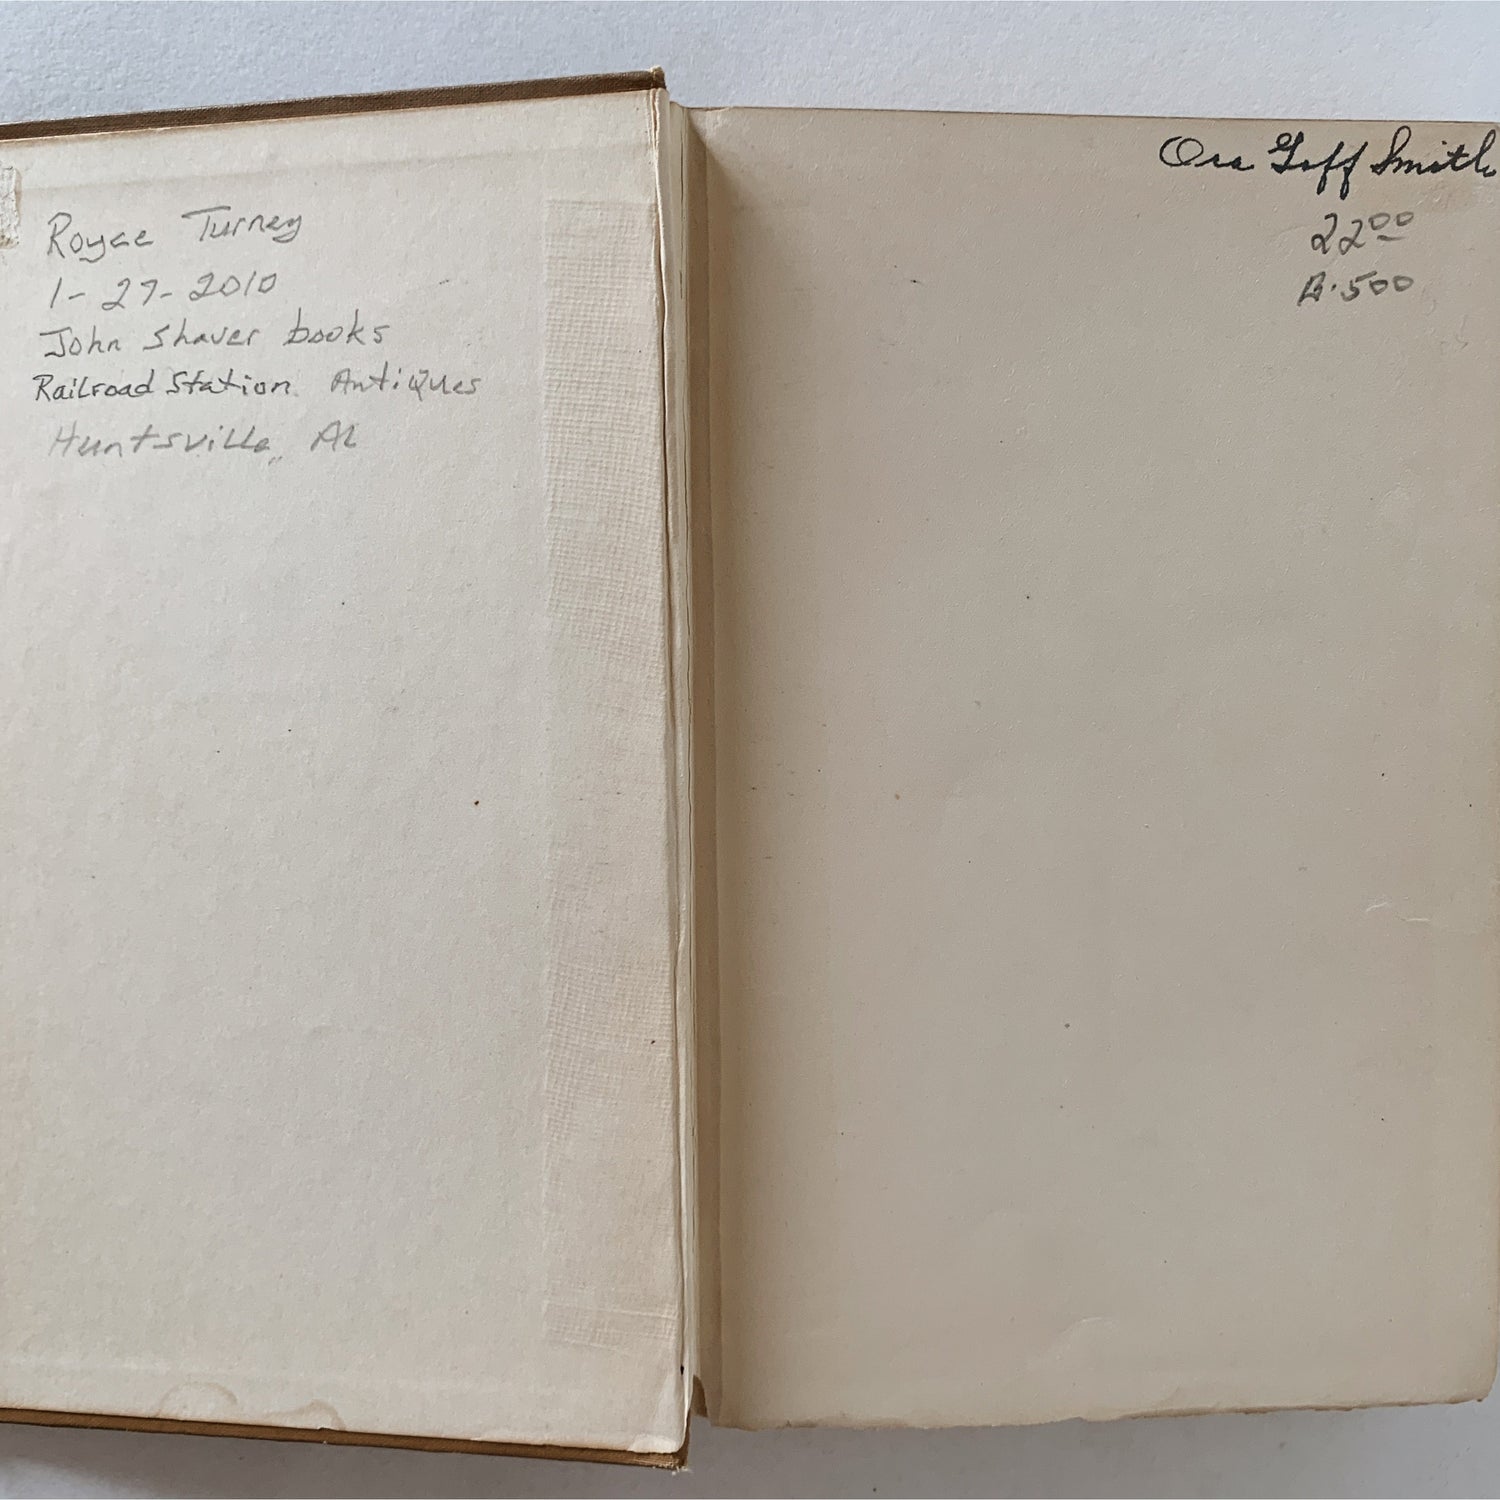 Royce Turney
1-27-2010
John Shaver books
Railroad Station Antiques
Huntsville, AL
Ora Goff Smith
2200
B.500